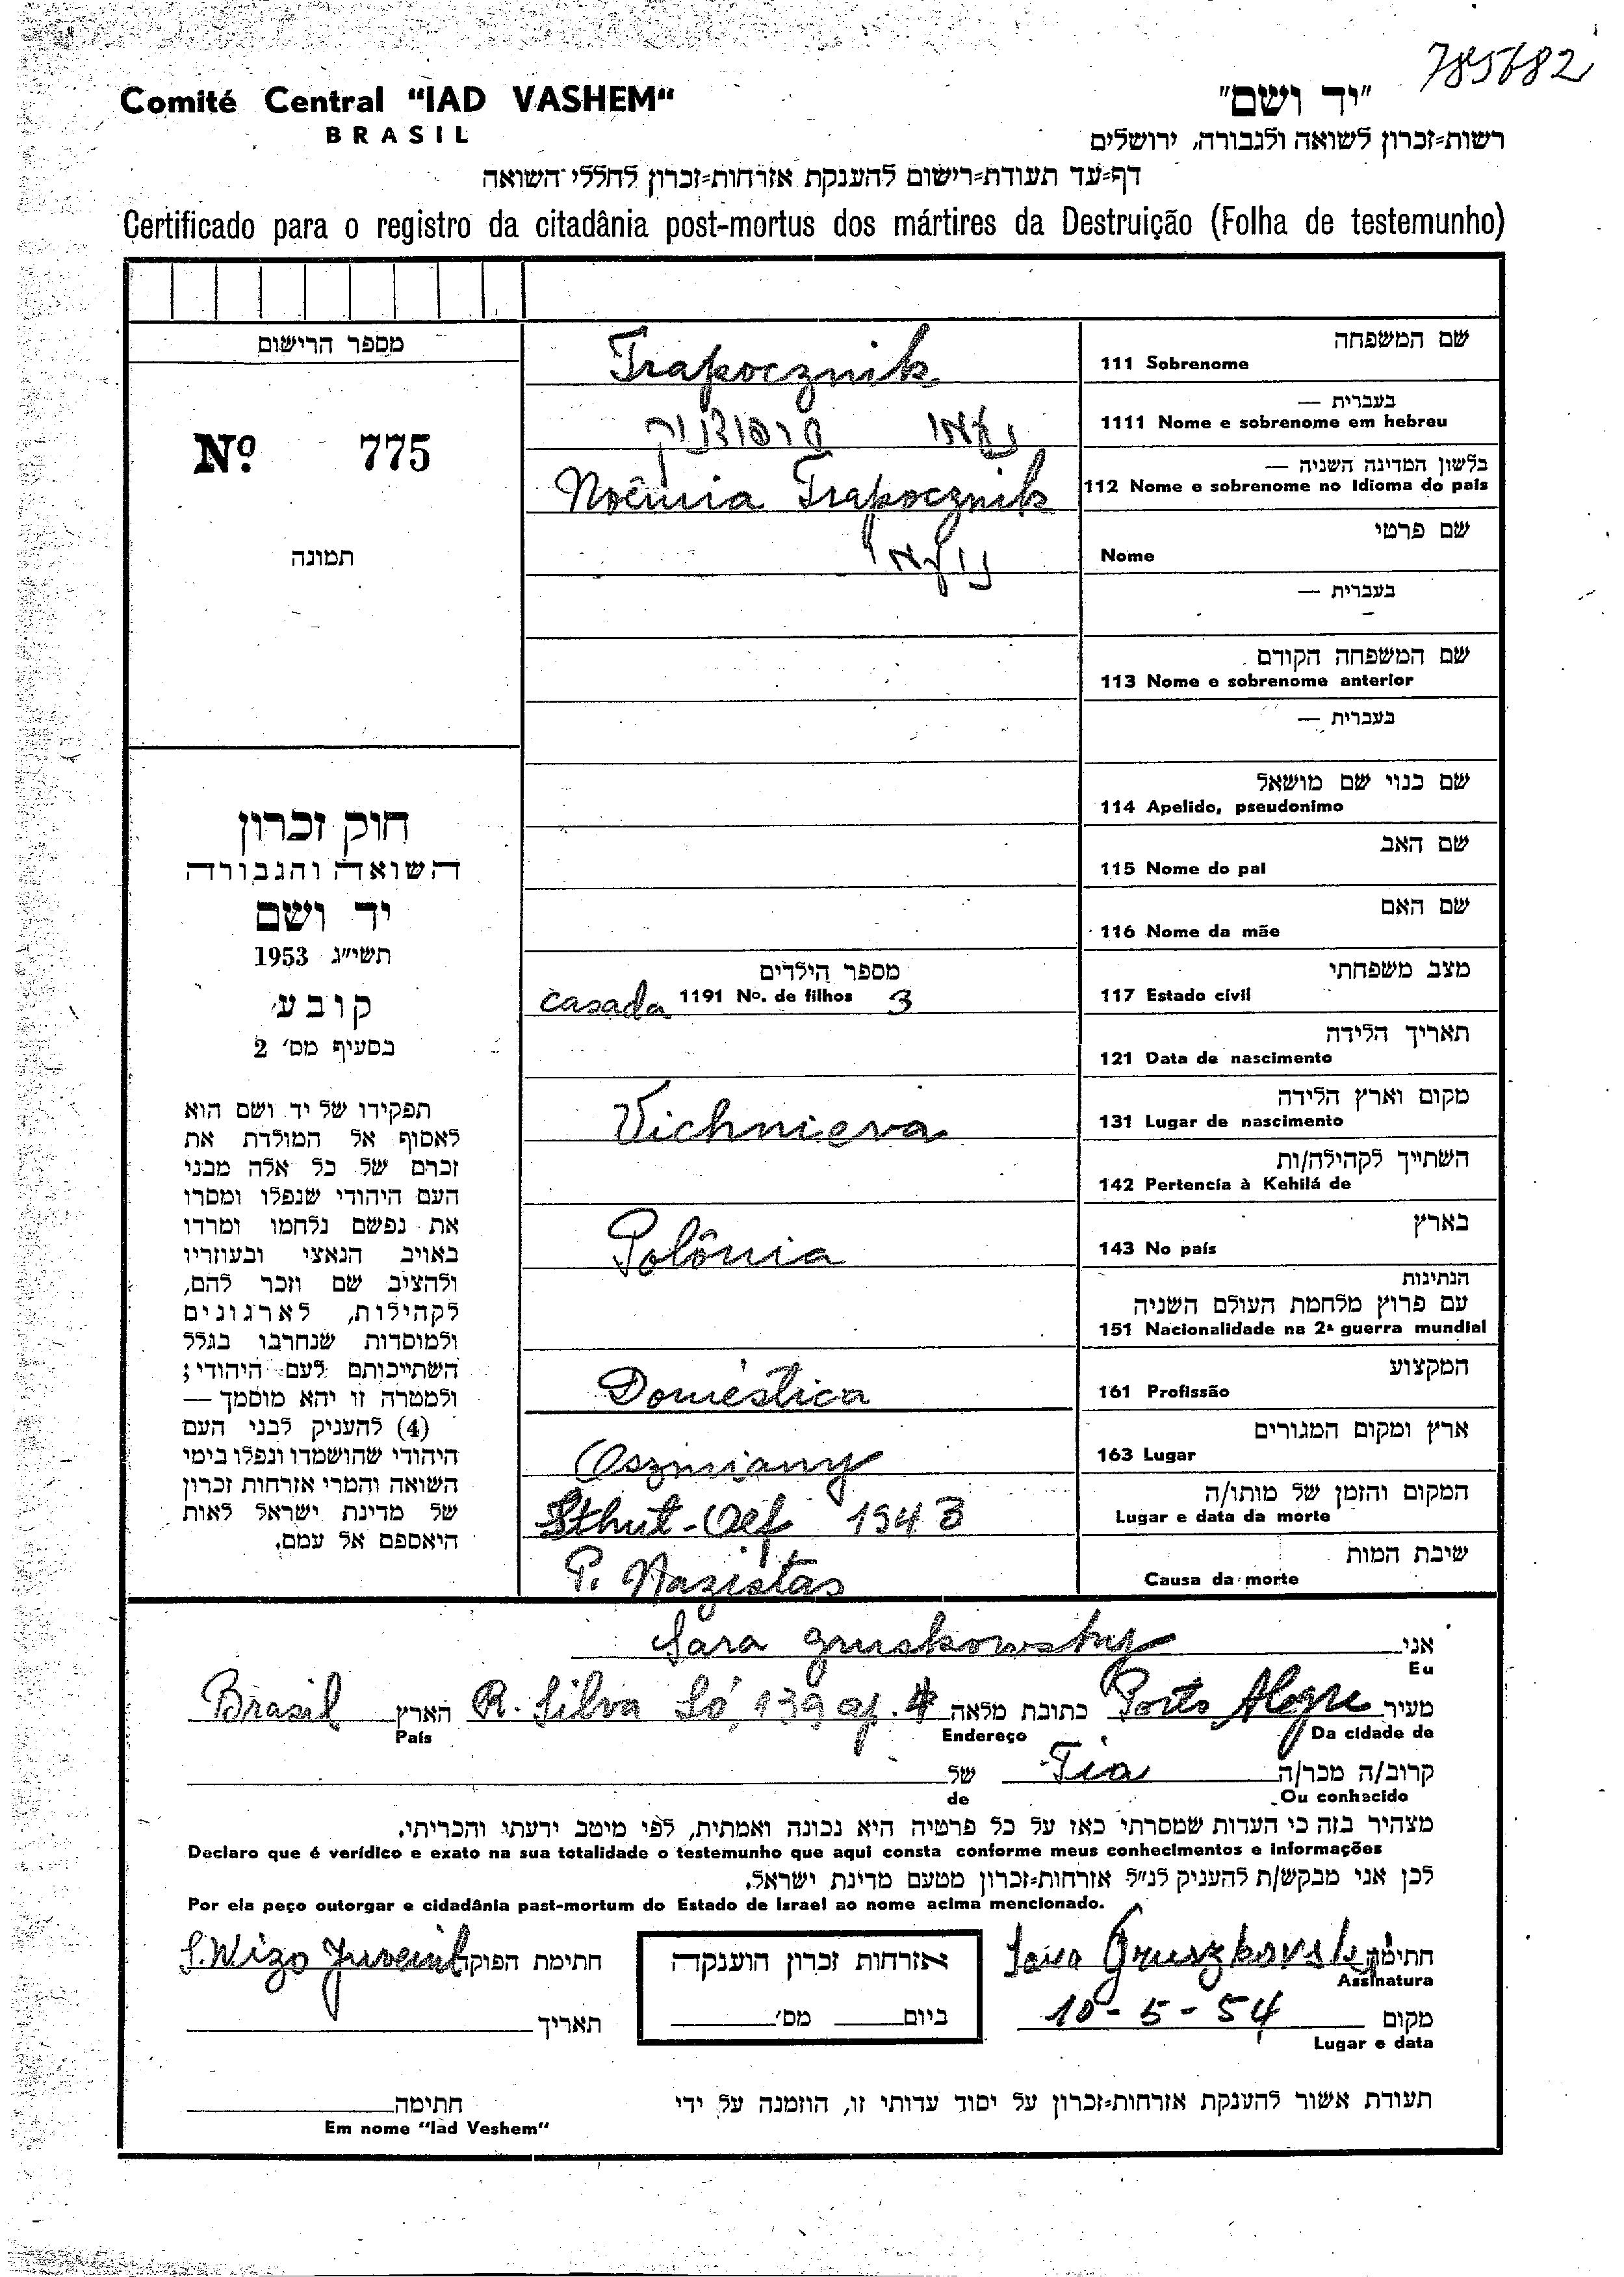 785682
Comité Central "IAD VASHEM"
BRASIL
"יד ושם"
רשות-זכרון לשואה ולגבורה, ירושלים
דף-עד תעודת-רישום להענקת אזרחות-זכרון לחללי השואה
Certificado para o registro da citadânia post-mortus dos mártires da Destruição (Folha de testemunho)
מספר הרישום
Nº. 775
תמונה
חוק זכרון
השואה והגבורה
יד ושם
תשי"ג 1953
קובע
בסעיף מס' 2
תפקידו של יד ושם הוא
לאסוף אל המולדת את
זכרם של כל אלה מבני
העם היהודי שנפלו ומסרו
את נפשם נלחמו ומרדו
באויב הנאצי ובעוזריו
ולהציב שם וזכר להם,
לקהילות, לארגונים
ולמוסדות שנחרבו בגלל
השתייכותם לעם היהודי;
ולמטרה זו יהא מוסמך —
(4) להענקיק לבני העם
היהודי שהושמדו ונפלו בימי
השואה והמרי אזרחות זכרון
של מדינת ישראל לאות
היאספם אל עמם.
שם המשפחה
111 Sobrenome Trapocznik
בעברית —
1111 Nome e sobrenome em hebreu נעמי טרפוצניק
בלשון המדינה השניה —
112 Nome e sobrenome no idioma do país Noêmia Trapocznik
שם פרטי
Nome נועמי
בעברית —
שם המשפחה הקודם
113 Nome e sobrenome anterior
בעברית —
שם כנוי שם מושאל
114 Apelido, pseudonimo
שם האב
115 Nome do pai
שם האם
116 Nome da mãe
מצב משפחתי
117 Estado cívil casada
מספר הילדים
1191 Nº. de filhos 3
תאריך הלידה
121 Data de nascimento
מקום וארץ הלידה
131 Lugar de nascimento Vichnieva
השתייך לקהילה/ות
142 Pertencia à Kehilá de
בארץ
143 No país Polônia
הנתינות
עם פרוץ מלחמת העולם השניה
151 Nacionalidade na 2ª guerra mundial
המקצוע
161 Profissão Doméstica
ארץ ומקום המגורים
163 Lugar Oszmiany
המקום והזמן של מותו/ה
Lugar e data da morte 1943
שיבת המות
Causa da morte P. Nazistas
אני
Eu Sara Gruskowsky
מעיר Porto Alegre כתובת מלאה R. Silva Só, 139 ap. 4 הארץ Brasil
Da cidade de Endereço País
קרוב/ה מכר/ה Tia של
Ou conhecido de
מצהיר בזה כי העדות שמסרתי כאן על כל פרטיה היא נכונה ואמתית, לפי מיטב ידעתי והכרתי.
Declaro que é verídico e exato na sua totalidade o testemunho que aqui consta conforme meus conhecimentos e informações
לכן אני מבקש/ת להעניק לנ"ל אזרחות-זכרון מטעם מדינת ישראל.
Por ela peço outorgar e cidadânia past-mortum do Estado de Israel ao nome acima mencionado.
חתימה Sara Gruszkovski
Assinatura
מקום 10-5-54
Lugar e data
אזרחות זכרון הוענקה
ביום מס'
חתימת הפוקד S. Wizo Juvenil
תאריך
תעודת אשור להענקת אזרחות-זכרון על יסוד עדותי זו, הוזמנה על ידי
חתימה
Em nome "Iad Veshem"